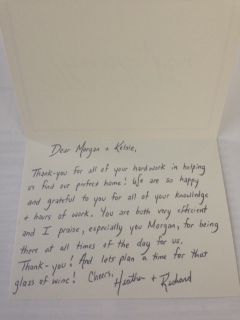 Dear Morgan + Kelsie,
Thank-you for all of your hardwork in helping
us find our perfect home! We are so happy
and grateful to you for all of your knowledge
+ hours of work. You are both very efficient
and I praise, especially you Morgan, for being
there at all times of the day for us.
Thank-you! And lets plan a time for that
glass of wine! Cheers, Heather + Richard